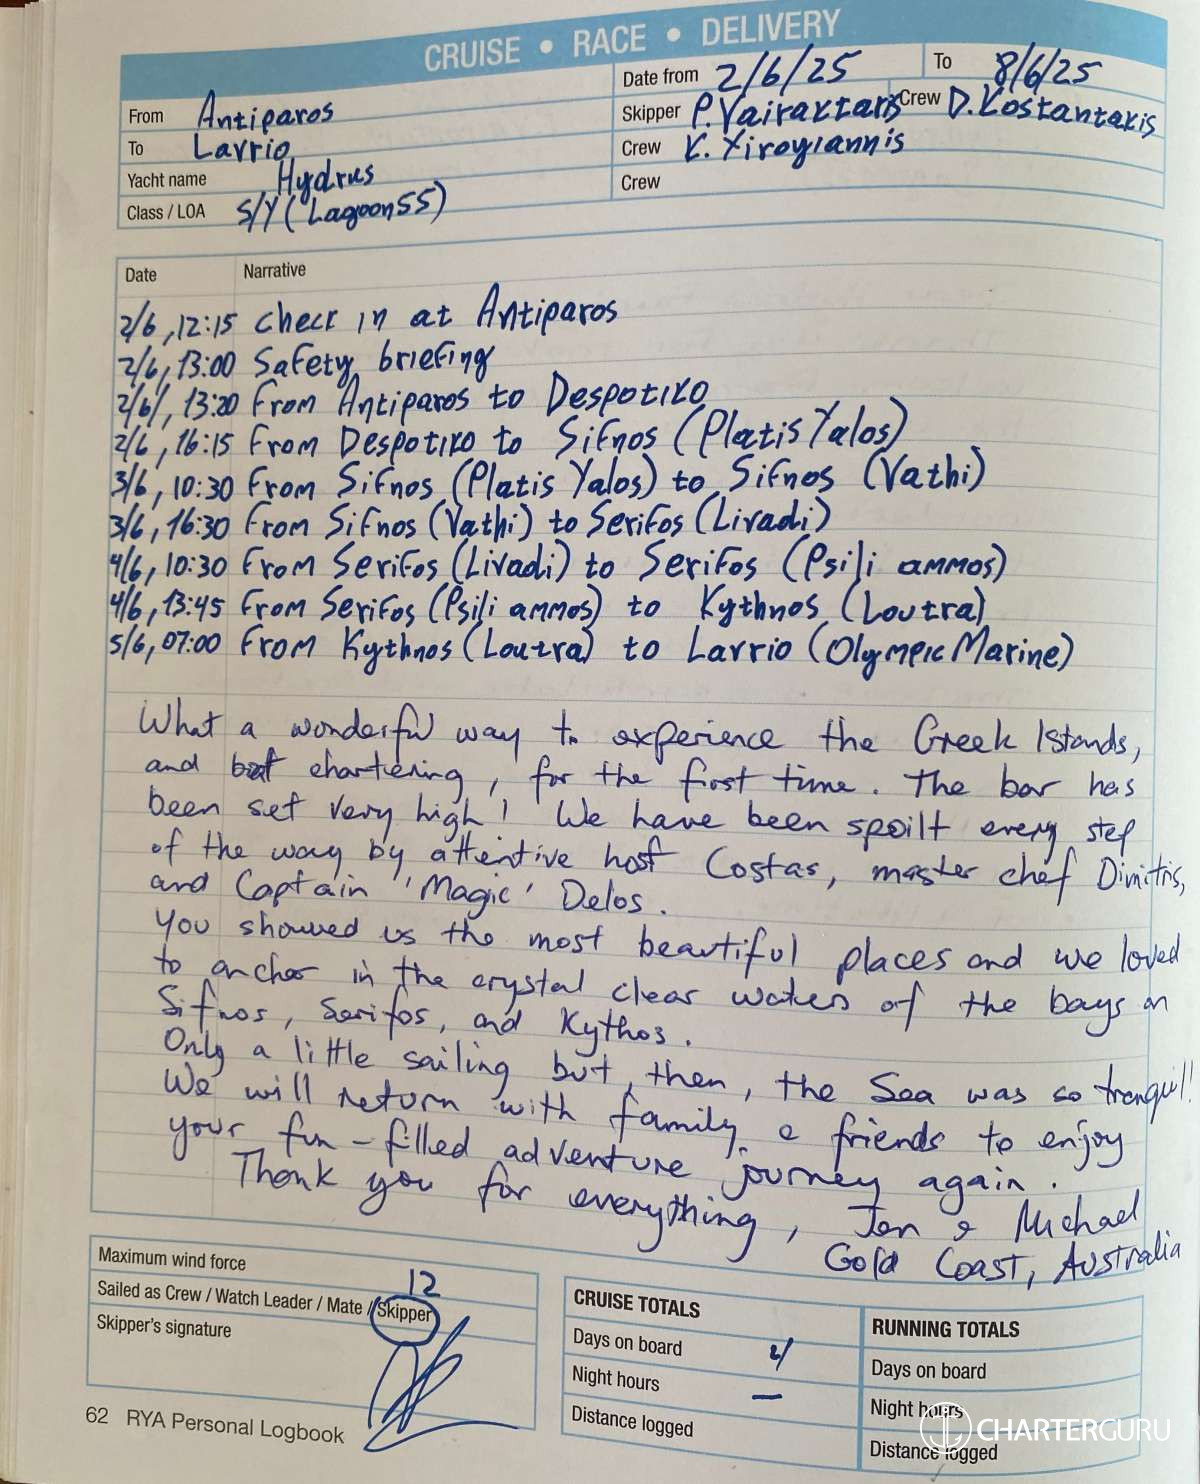 CRUISE • RACE • DELIVERY
From Antiparos
To Lavrio
Yacht name Hydrus
Class / LOA S/Y (Lagoon55)
Date from 2/6/25 To 8/6/25
Skipper P. Vairaktaris Crew D. Kostantakis
Crew K. Xirogiannis
Crew
Date Narrative
2/6, 12:15 check in at Antiparos
2/6, 13:00 Safety briefing
2/6, 13:20 From Antiparos to Despotiko
2/6, 16:15 From Despotiko to Sifnos (Platis Yalos)
3/6, 10:30 From Sifnos (Platis Yalos) to Sifnos (Vathi)
3/6, 16:30 From Sifnos (Vathi) to Serifos (Livadi)
4/6, 10:30 From Serifos (Livadi) to Serifos (Psili ammos)
4/6, 13:45 From Serifos (Psili ammos) to Kythnos (Loutra)
5/6, 07:00 From Kythnos (Loutra) to Lavrio (Olympic Marine)
What a wonderful way to experience the Greek Islands,
and chartering, for the first time. The bar has
been set very high! We have been spoilt every step
of the way by attentive host Costas, master chef Dimitris,
and Captain 'Magic' Delos.
You showed us the most beautiful places and we loved
to anchor in the crystal clear waters of the bays on
Sifnos, Serifos, and Kythos.
Only a little sailing but, then, the Sea was so tranquil!
We will return with family & friends to enjoy
your fun-filled adventure journey again.
Thank you for everything, Jen & Michael
Gold Coast, Australia
Maximum wind force
12
Sailed as Crew / Watch Leader / Mate / Skipper
Skipper's signature
CRUISE TOTALS
Days on board
Night hours —
Distance logged
RUNNING TOTALS
Days on board
Night hours
Distance logged
62 RYA Personal Logbook
CHARTERGURU